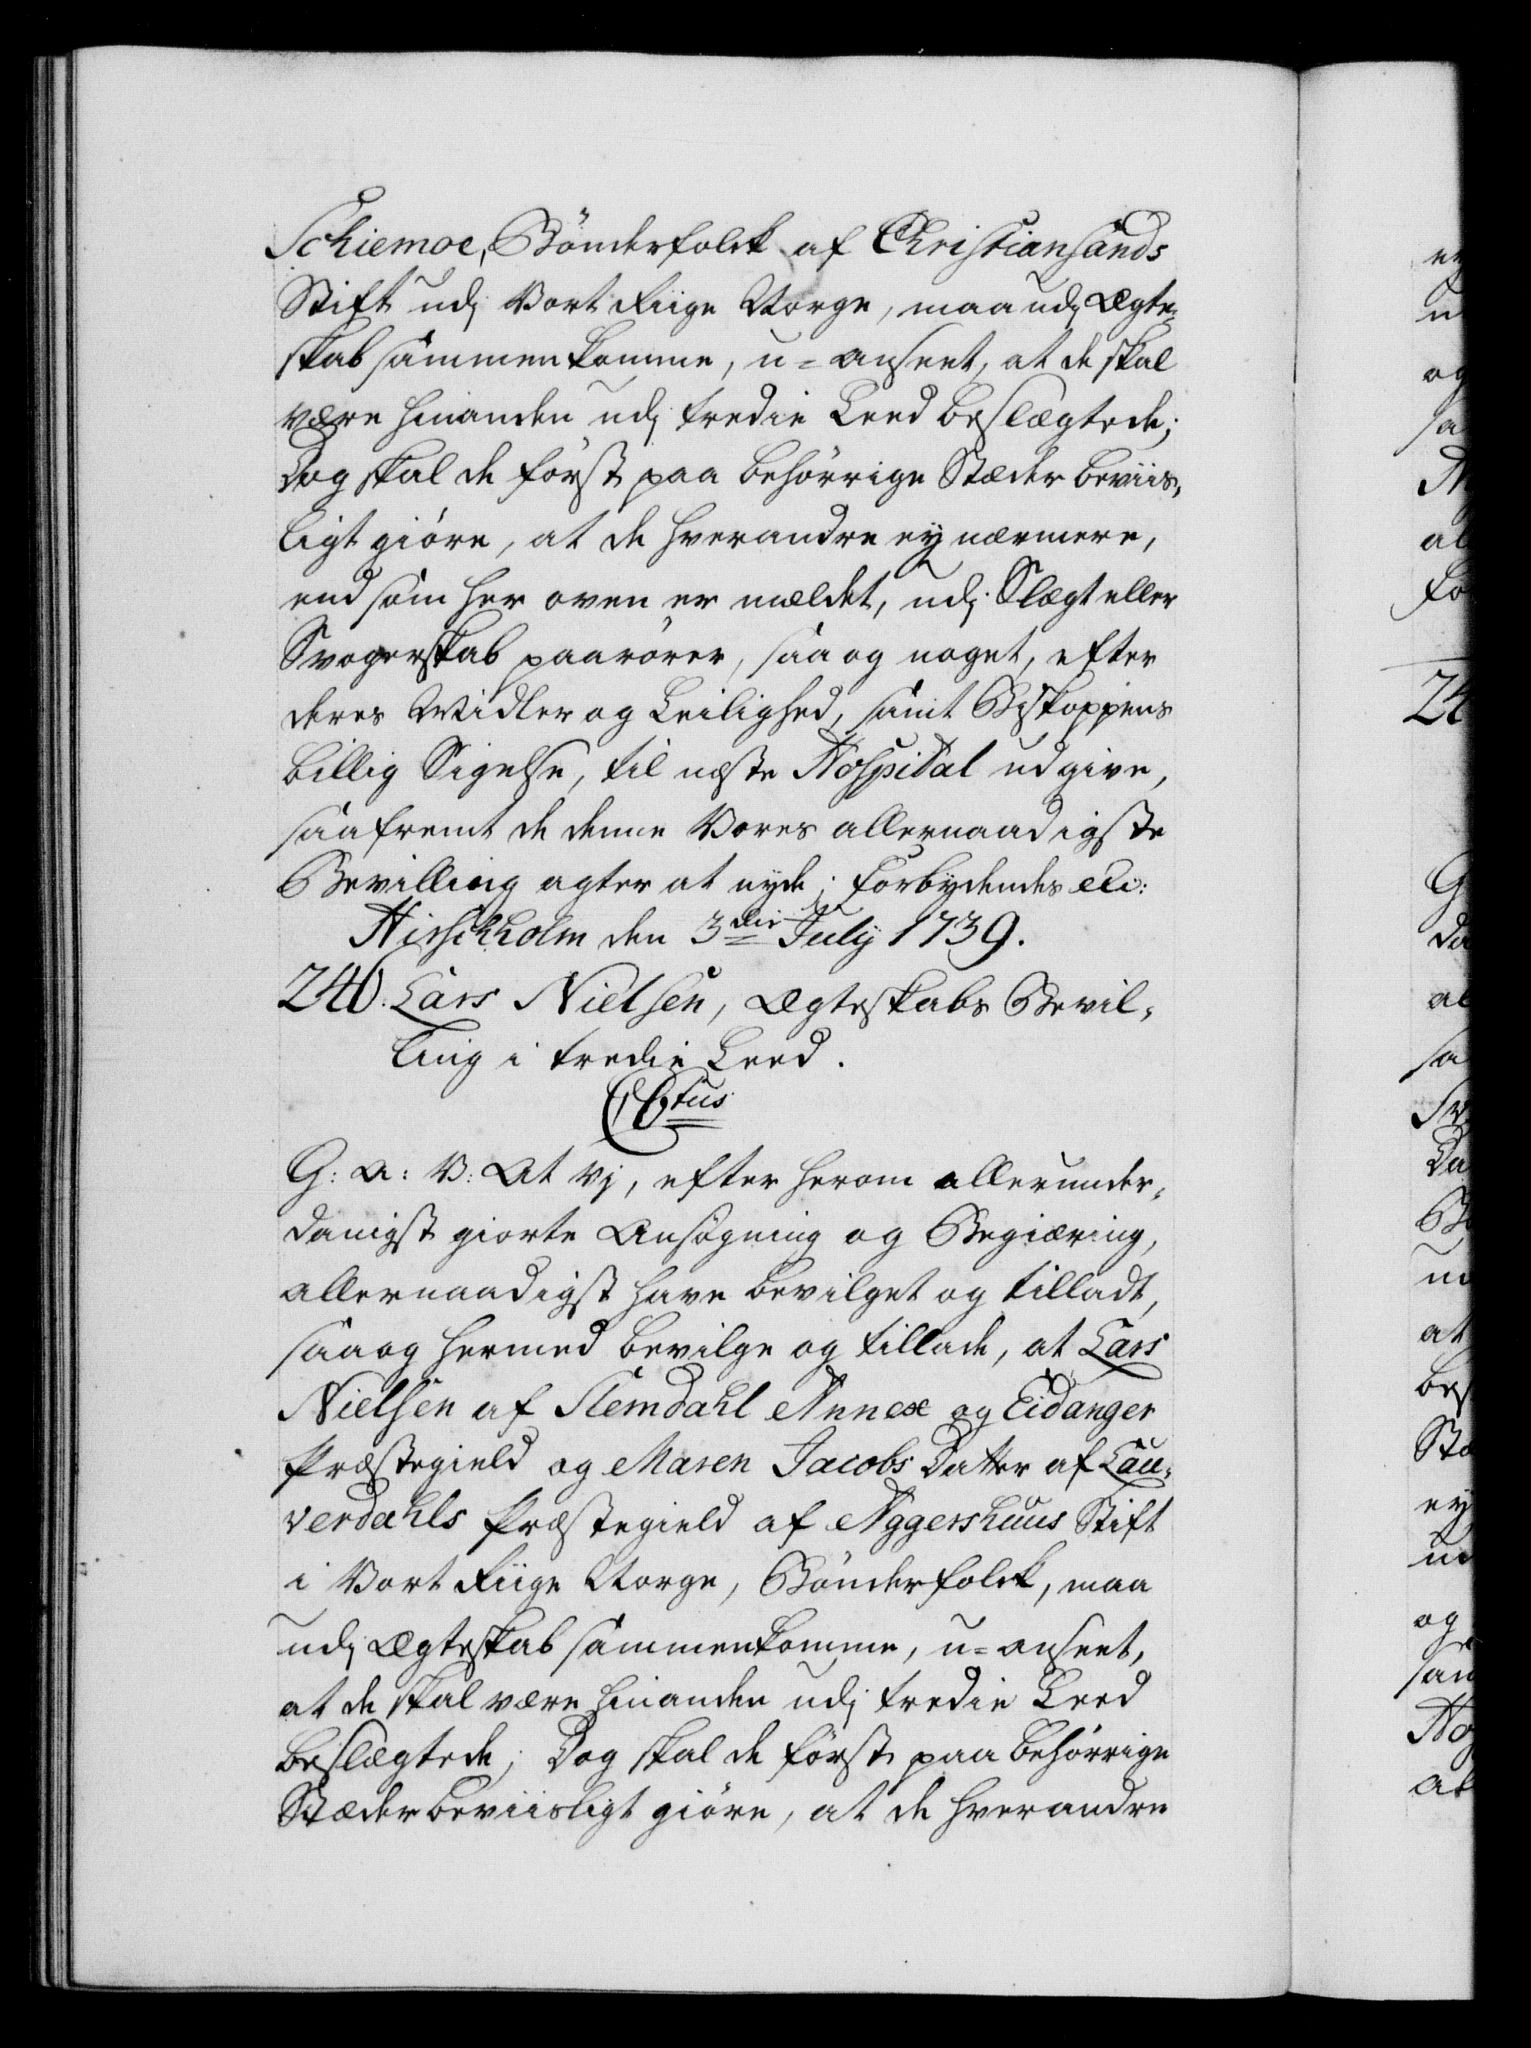 Schiemoe, Bönderfolck af Christiansands
Stift udj Vort Riige Norge, maa udj Ægte-
skab sammenkomme, u-anseet, at de skal
være hinanden udj tredie Leed beslægtede;
Dog skal de först paa behörrige Stæder beviis-
ligt giöre, at de hverandre ey nærmere,
end som her oven er meldet, udj Slægt eller
Svogerskab paarörer, saa og noget, efter
deres Midler og Leilighed, samt Biskoppens
billig Sigelse, til næste Hospital udgive,
saafremt de denne Vores allernaadigste
Bevilling agter at nyde; Forbydendes etc:
Hirschholm den 3die July 1739.
240. Lars Nielsen, Ægteskabs Bevil-
ling i tredie Leed.
C 6tus
G: A: V: At Vj, efter herom allerunder-
danigst giorte Ansögning og Begiæring,
allernaadigst have bevilget og tilladt,
saa og hermed bevilge og tillade, at Lars
Nielsen af Slemdahl Annex og Eidanger
Præstegield og Maren Jacobs Datter af Lau-
verdahls Præstegield af Aggershuus Stift
i Vort Riige Norge, Bönderfolck, maa
udj Ægteskab sammenkomme, u-anseet,
at de skal være hinanden udj tredie Leed
beslægtede; Dog skal de först paa behörrige
Stæder beviisligt giöre, at de hverandre